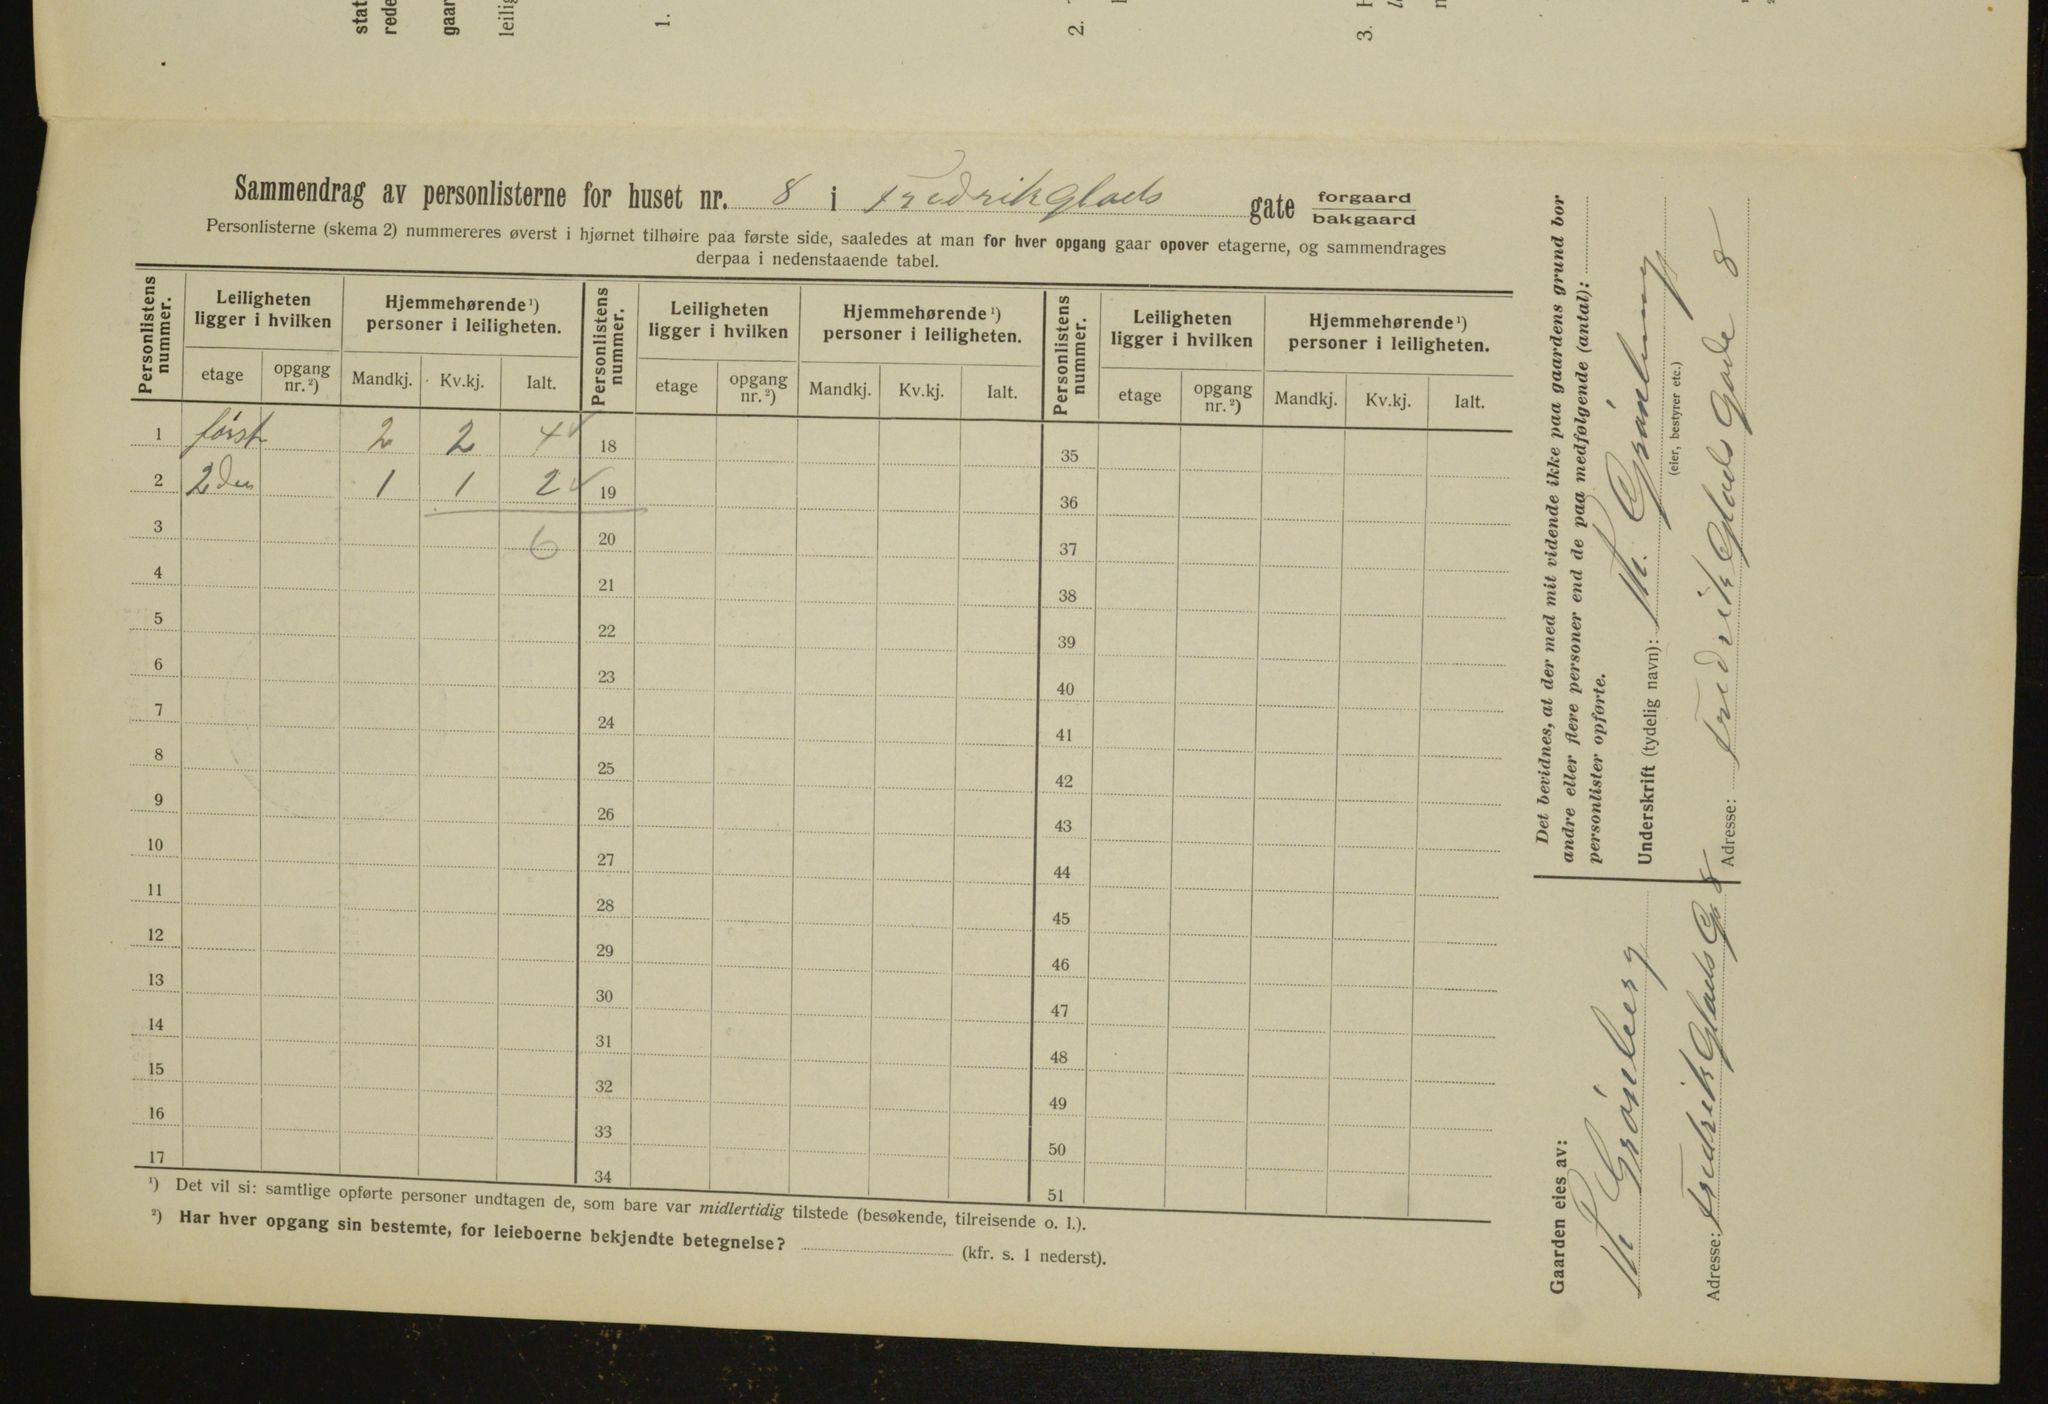 stat
rede
gaar
leilig
1.
2.
3.
Sammendrag av personlisterne for huset nr. 8 i Fredrikglads gate forgaard
bakgaard
Personlisterne (skema 2) nummereres øverst i hjørnet tilhøire paa første side, saaledes at man for hver opgang gaar opover etagerne, og sammendrages
derpaa i nedenstaaende tabel.
Personlistens nummer. Leiligheten ligger i hvilken Hjemmehørende ¹) personer i leiligheten. Personlistens nummer. Leiligheten ligger i hvilken Hjemmehørende ¹) personer i leiligheten. Personlistens nummer. Leiligheten ligger i hvilken Hjemmehørende ¹) personer i leiligheten.
etage opgang nr. ²) Mandkj. Kv.kj. Ialt. etage opgang nr. ²) Mandkj. Kv.kj. Ialt. etage opgang nr. ²) Mandkj. Kv.kj. Ialt.
1 først 2 2 4 ✓ 18 35
2 2den 1 1 2 ✓ 19 36
3 6 20 37
4 21 38
5 22 39
6 23 40
7 24 41
8 25 42
9 26 43
10 27 44
11 28 45
12 29 46
13 30 47
14 31 48
15 32 49
16 33 50
17 34 51
¹) Det vil si: samtlige opførte personer undtagen de, som bare var midlertidig tilstede (besøkende, tilreisende o. l.).
²) Har hver opgang sin bestemte, for leieboerne bekjendte betegnelse? (kfr. s. 1 nederst).
Det bevidnes, at der med mit vidende ikke paa gaardens grund bor
andre eller flere personer end de paa medfølgende (antal):
personlister opførte.
Underskrift (tydelig navn): Th. Grönberg
(eier, bestyrer etc.)
Adresse: Fredrik Glads Gade 8
Gaarden eies av:
Th Grönberg
Adresse: Fredrik Glads G. 8